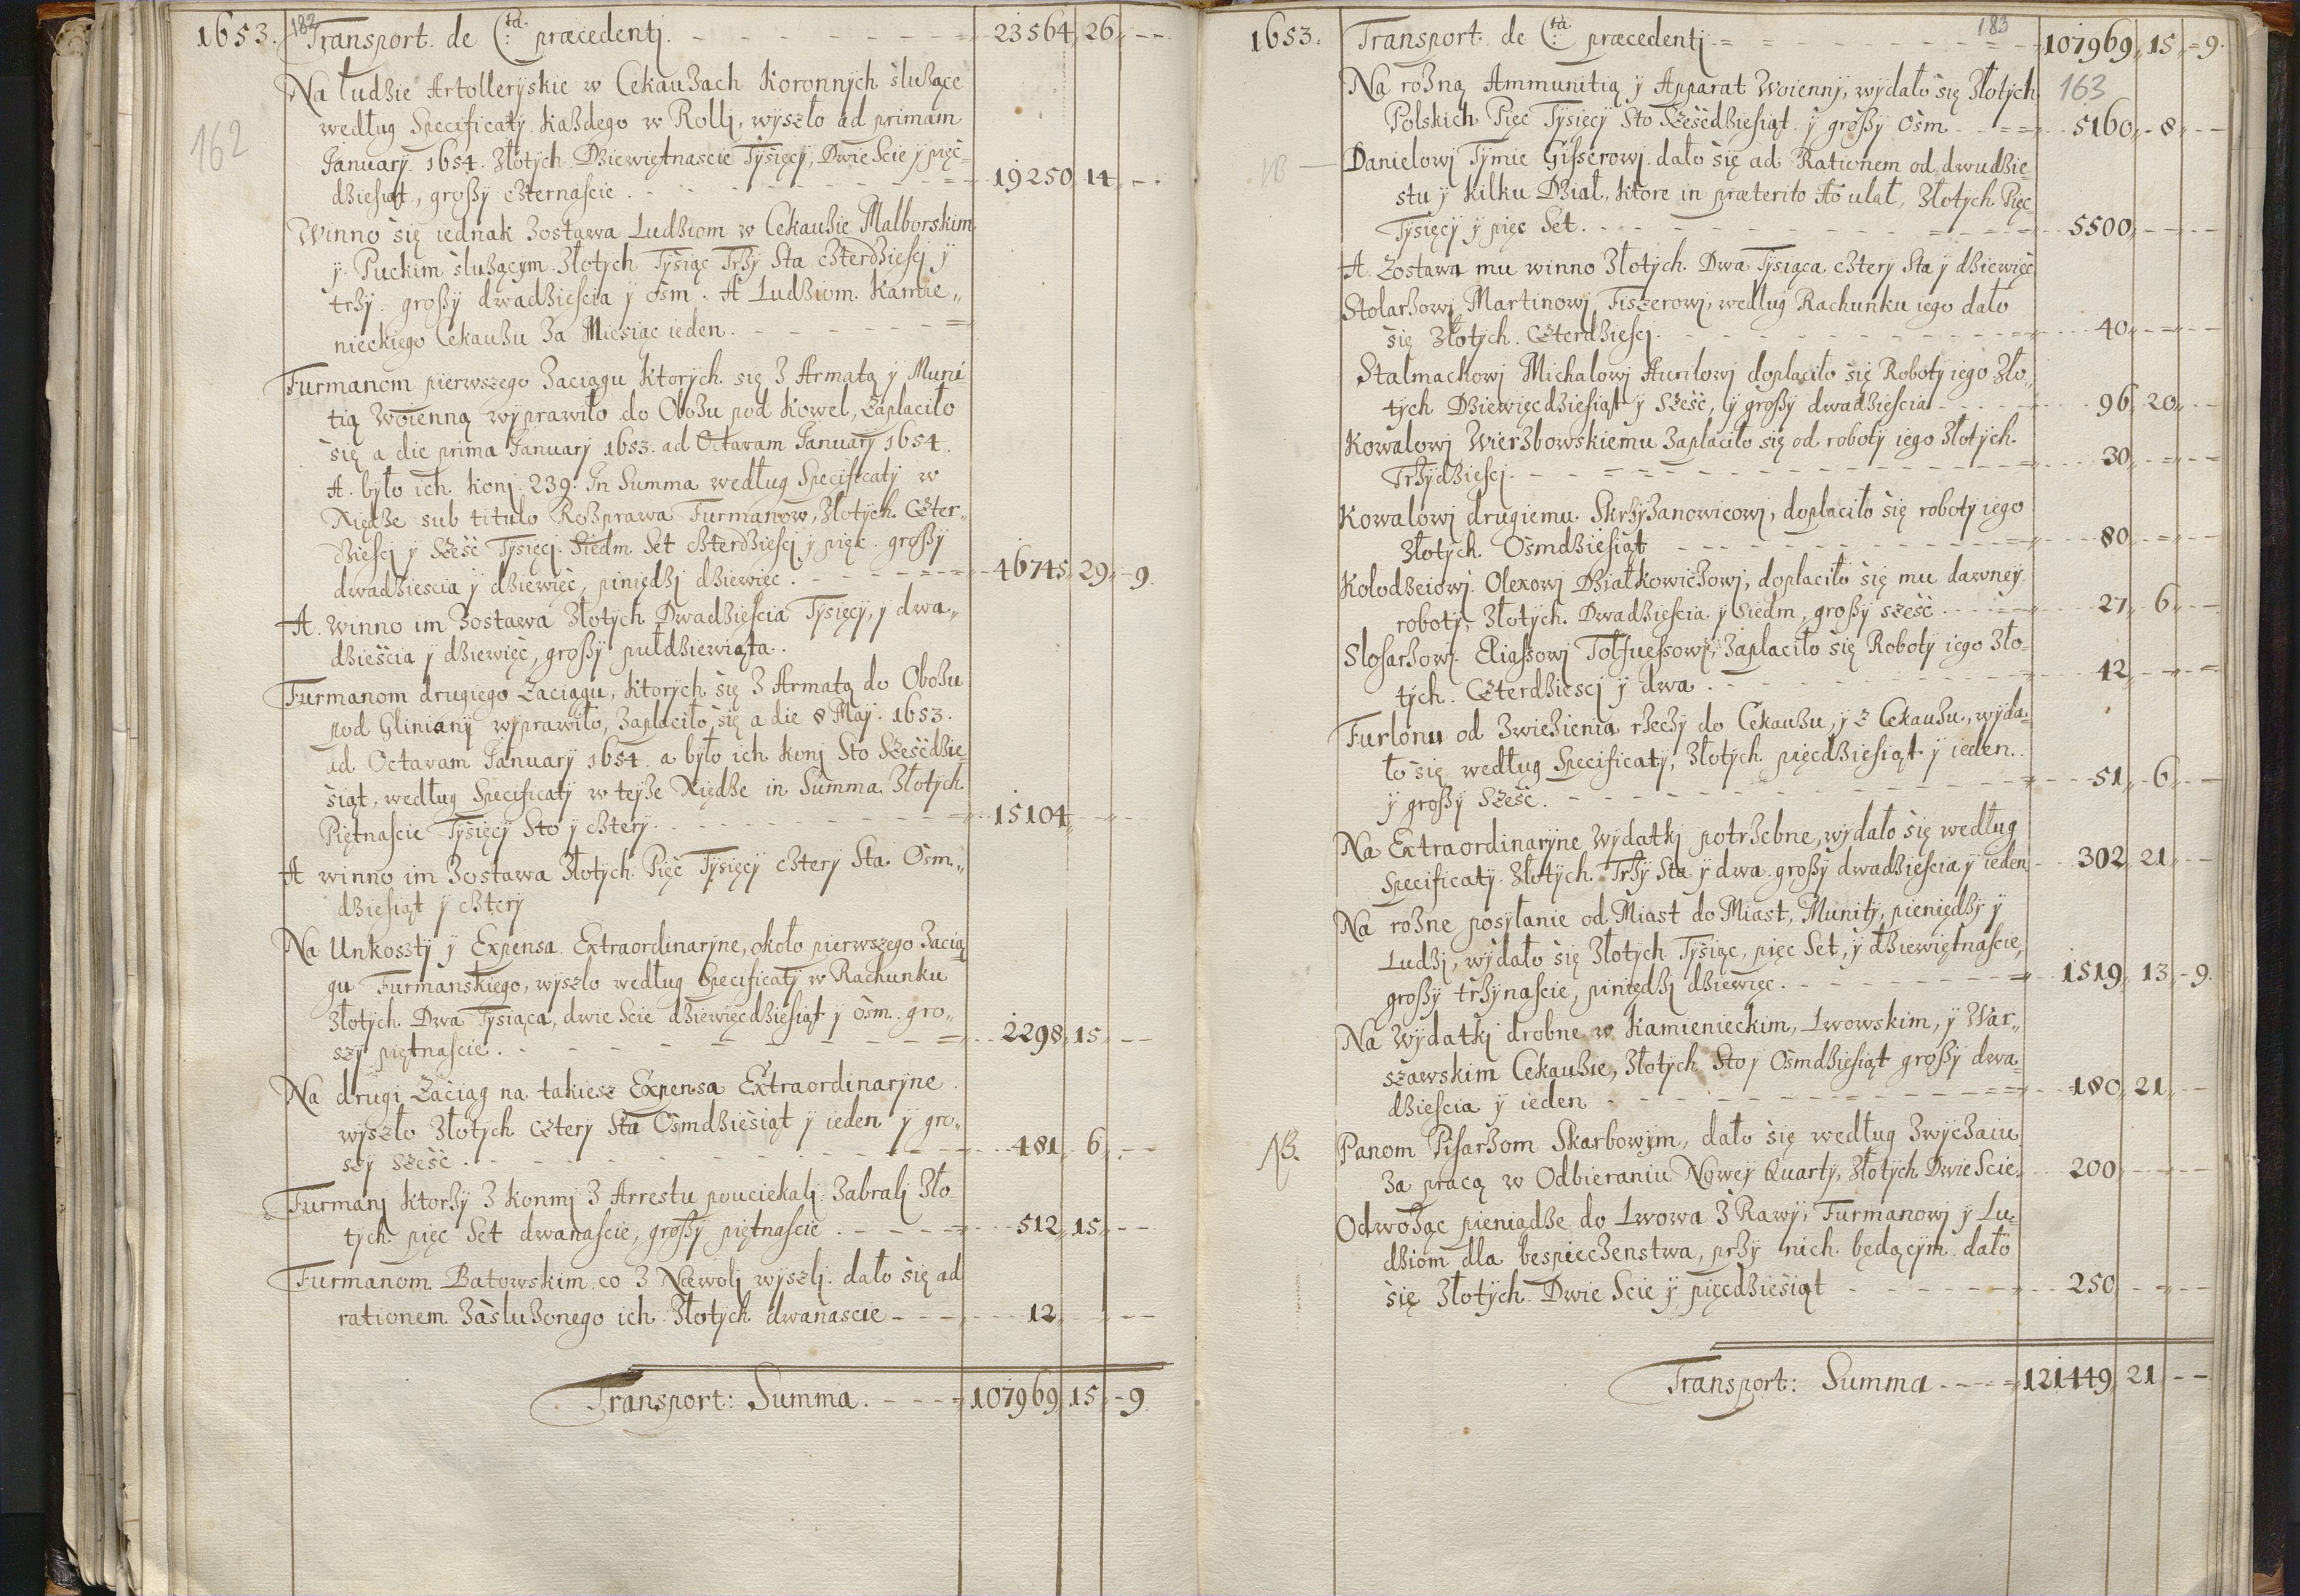 182
1653. Transport. de C:ta præcedentj. 23564 26
Na ludzie Artolleryskie w Cekauzach Koronnych służące
162
według Specificaty każdego w Rollj, wyszło ad primam
January. 1654. Złotych Dziewiętnascie Tysięcy, Dwie Scie y pięć-
dziesiąt, groszy czternascie 19250 14
Winno się iednak zostawa Ludziom w Cekauzie Malborskim
y Puckim służącym Złotych Tysiąc Trzy Sta czterdziescj y
trzy. groszy dwadziescia y osm. A Ludziom Kamie„
nieckiego Cekauzu za Miesiąc ieden.
Furmanom pierwszego zaciągu ktorych się z Armatą y Muni
tią woienną wyprawiło do Obozu pod Kowel, zapłaciło
się a die prima January 1653. ad Octavam January 1654.
A. było ich konj. 239. In Summa według Specificaty w
Xiędze sub titulo Rozprawa Furmanow, Złotych Czter„
dziescj y Szesć Tysięcj. Siedm Set czterdziescj y pięć. groszy
dwadziescia y dziewięć, piniędzj dziewięc. 46745 29 9.
A. winno im zostawa Złotych Dwadziescia Tysięcy, y dwa„
dziescia y dziewięć, groszy pułdziewiąta.
Furmanom drugiego zaciągu, ktorych się z Armatą do Obozu
pod Gliniany wyprawiło, zapłaciło się a die 8 May. 1653.
ad Octavam January 1654. a było ich konj Sto Szescdzie-
siąt, według Specificaty w teyże Xiędze in Summa Złotych
Piętnascie Tysięcy Sto y cztery. 15104
A winno im zostawa Złotych. Pięć Tysięcy cztery Sta Osm„
dziesiąt y cztery
Na Unkoszty y Expensa Extraordinaryne, około pierwszego zacią
gu Furmanskiego, wyszło według Specificaty w Rachunku
Złotych. Dwa Tysiąca, dwie Scie dziewięcdziesiąt y osm. gro„
szy piętnascie. 2298 15
Na drugi zaciąg na takiesz Expensa Extraordinaryne.
wyszło Złotych cztery Sta Osmdziesiąt y ieden y gro„
szy szesć. 481 6
Furmanj ktorzy z konmj z Arrestu pouciekalj. zabralj Zło-
tych. pięć Set dwanascie, groszy piętnascie. 512 15
Furmanom Batowskim co z Niewolj wyszlj. dało się ad
rationem zasłużonego ich. Złotych dwanascie 12
Transport: Summa. 107969 15 9
183
1653. Transport. de C:ta præcedentj. 107969 15 9.
163
Na rozną Ammunitią y Apparat Woienny, wydało się Złotych
Polskich Pięć Tysięcy Sto Szescdziesiąt. y groszy Osm. 5160 8
NB
Danielowj Tymie Gisserowj dało się ad Rationem od dwudzie-
stu y kilku Dział, ktore in præterito Ao ulał, Złotych Pięc
Tysięcy y pięc Set. 5500
A. zostawa mu winno Złotych. Dwa Tysiąca cztery Sta y dziewięć
Stolarzowj Martinowj Fiszerowj, według Rachunku iego dało
się Złotych. Czterdziescj. 40
Stalmachowj Michałowj Aurilowj dopłaciło się Roboty iego Zło„
tych Dziewięcdziesiąt y Szesć, y groszy dwadziescia 96 20
Kowalowj Wierzbowskiemu zapłaciło się od roboty iego Złotych.
Trzydziescj. 30
Kowalowj drugiemu. Skrzyzanowicowj, dopłaciło się roboty iego
Złotych. Osmdziesiąt 80
Kolodzeiowj. Olexowj Działkowiczowj, dopłaciło się mu dawney
roboty, Złotych. Dwadziescia y siedm, groszy szesć 27 6
Slosarzowj. Eliaszowj Tolfuessowj, zapłaciło się Roboty iego Zło-
tych. Czterdziescj y dwa. 42
Furlonu od zwiezienia rzeczy do Cekauzu, y z Cekauzu, wyda-
ło się według Specificaty, Złotych pięcdziesiąt y ieden.
y groszy Szesć. 51 6
Na Extraordinaryne Wydatkj potrzebne, wydało się według
Specificaty. Złotych. Trzy Sta y dwa. groszy dwadziescia y ieden 302 21
Na rozne posyłanie od Miast do Miast, Munity, pieniędzy y
Ludzj, wydało się Złotych Tysiąc, pięc Set, y dziewiętnascie,
groszy trzynascie, piniędzj dziewięc. 1519 13 9.
Na Wydatkj drobne w Kamienieckim, Lwowskim, y War„
szawskim Cekauzie, Złotych Sto y Osmdziesiąt groszy dwa-
dziescia y ieden 180 21
NB.
Panom Pisarzom Skarbowym, dało się według zwyczaiu
za pracą w Odbieraniu Nowey Quarty, Złotych Dwie Scie. 200
Odwożąc pieniądze do Lwowa z Rawy, Furmanowj y Lu-
dziom dla bespieczenstwa, przy nich będącym. dało
się Złotych. Dwie Scie y pięcdziesiąt 250
Transport: Summa 121449 21